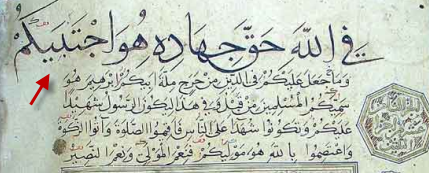 في الله حق جهاده هو اجتبيكم
وما جعل عليكم في الدين من حرج ملة ابيكم ابرهيم هو
سميكم المسلمين من قبل وفي هذا ليكون الرسول شهيدا
عليكم وتكونوا شهدا على الناس فاقيموا الصلوة وآتوا الزكوة
واعتصموا بالله هو موليكم فنعم المولى ونعم النصير